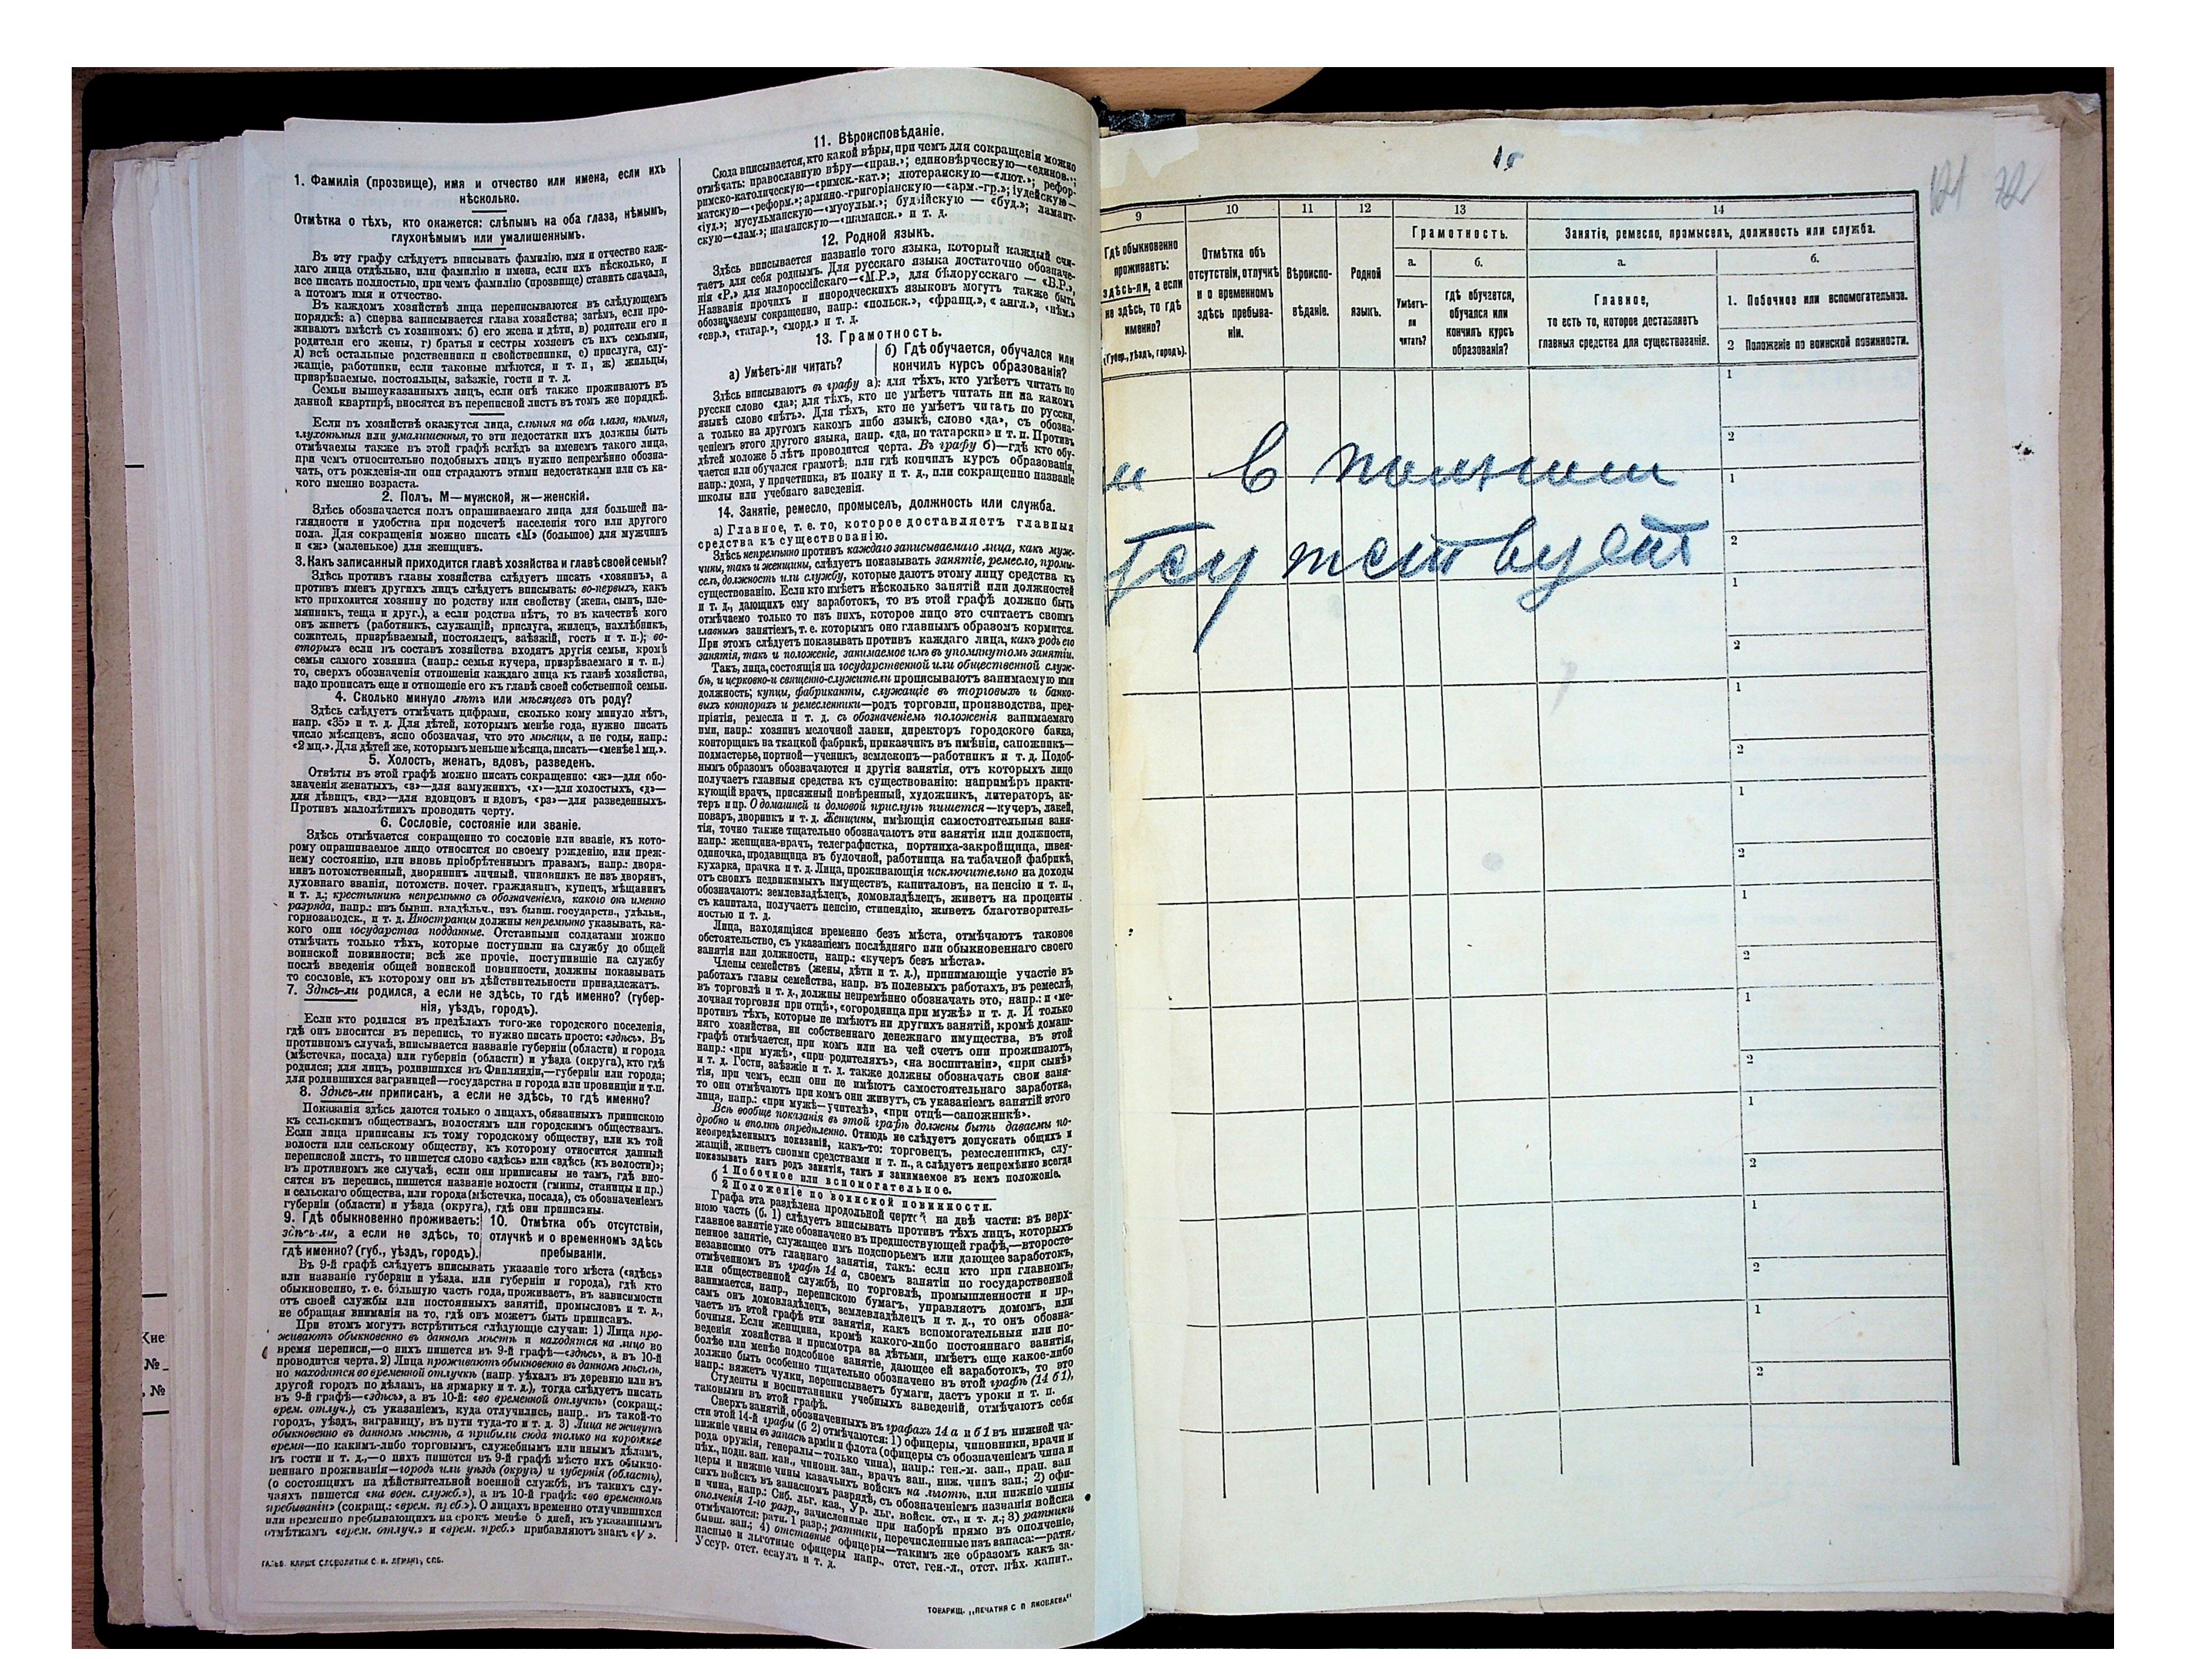 1. Фамилія (прозвище), имя и отчество или имена, если ихъ
нѣсколько.
Отмѣтка о тѣхъ, кто окажется: слѣпымъ на оба глаза, нѣмымъ,
глухонѣмымъ или умалишеннымъ.
Въ эту графу слѣдуетъ вписывать фамилію, имя и отчество каж-
даго лица отдѣльно, или фамилію и имена, если ихъ нѣсколько, и
все писать полностью, при чемъ фамилію (прозвище) ставить сначала,
а потомъ имя и отчество.
Въ каждомъ хозяйствѣ лица переписываются въ слѣдующемъ
порядкѣ: а) сперва записывается глава хозяйства; затѣмъ, если про-
живаютъ вмѣстѣ съ хозяиномъ: б) его жена и дѣти, в) родители его и
родители его жены, г) братья и сестры хозяевъ съ ихъ семьями,
д) всѣ остальные родственники и свойственники, е) прислуга, слу-
жащіе, работники, если таковые имѣются, и т. п, ж) жильцы,
призрѣваемые, постояльцы, заѣзжіе, гости и т. п.
Семьи вышеуказанныхъ лицъ, если онѣ также проживаютъ въ
данной квартирѣ, вносятся въ переписной листъ въ томъ же порядкѣ.
Если въ хозяйствѣ окажутся лица, слѣпыя на оба глаза, нѣмыя,
глухонѣмыя или умалишенныя, то эти недостатки ихъ должны быть
отмѣчаемы также въ этой графѣ вслѣдъ за именемъ такого лица,
при чемъ относительно подобныхъ лицъ нужно непремѣнно обозна-
чать, отъ рожденія-ли они страдаютъ этими недостатками или съ ка-
кого именно возраста.
2. Полъ. М—мужской, ж—женскій.
Здѣсь обозначается полъ опрашиваемаго лица для большей на-
глядности и удобства при подсчетѣ населенія того или другого
пола. Для сокращенія можно писать «М» (большое) для мужчинъ
и «ж» (маленькое) для женщинъ.
3. Какъ записанный приходится главѣ хозяйства и главѣ своей семьи?
Здѣсь противъ главы хозяйства слѣдуетъ писать «хозяинъ», а
противъ именъ другихъ лицъ слѣдуетъ вписывать: во-первыхъ, какъ
кто приходится хозяину по родству или свойству (жена, сынъ, пле-
мянникъ, теща и друг.), а если родства нѣтъ, то въ качествѣ кого
онъ живетъ (работникъ, служащій, прислуга, жилецъ, нахлѣбникъ,
сожитель, призрѣваемый, постоялецъ, заѣзжій, гость и т. п.); во-
вторыхъ если въ составъ хозяйства входятъ другія семьи, кромѣ
семьи самого хозяина (напр.: семья кучера, призрѣваемаго и т. п.)
то, сверхъ обозначенія отношенія каждаго лица къ главѣ хозяйства,
надо прописать еще и отношеніе его къ главѣ своей собственной семьи.
4. Сколько минуло лѣтъ или мѣсяцевъ отъ роду?
Здѣсь слѣдуетъ отмѣчать цифрами, сколько кому минуло лѣтъ,
напр. «35» и т. д. Для дѣтей, которымъ менѣе года, нужно писать
число мѣсяцевъ, ясно обозначая, что это мѣсяцы, а не годы, напр.:
«2 мц.». Для дѣтей же, которымъ меньше мѣсяца, писать—«менѣе 1 мц.».
5. Холостъ, женатъ, вдовъ, разведенъ.
Отвѣты въ этой графѣ можно писать сокращенно: «ж»—для обо-
значенія женатыхъ, «з»—для замужнихъ, «х»—для холостыхъ, «д»—
для дѣвицъ, «вд»—для вдовцовъ и вдовъ, «рз»—для разведенныхъ.
Противъ малолѣтнихъ проводить черту.
6. Сословіе, состояніе или званіе.
Здѣсь отмѣчается сокращенно то сословіе или званіе, къ кото-
рому опрашиваемое лицо относится по своему рожденію, или преж-
нему состоянію, или вновь пріобрѣтеннымъ правамъ, напр.: дворя-
нинъ потомственный, дворянинъ личный, чиновникъ не изъ дворянъ,
духовнаго званія, потомств. почет. гражданинъ, купецъ, мѣщанинъ
и т. д.; крестьянинъ непремѣнно съ обозначеніемъ, какого онъ именно
разряда, напр.: изъ бывш. владѣльч., изъ бывш. государств., удѣльн.,
горнозаводск., и т. д. Иностранцы должны непремѣнно указывать, ка-
кого они государства подданные. Отставными солдатами можно
отмѣчать только тѣхъ, которые поступили на службу до общей
воинской повинности; всѣ же прочіе, поступившіе на службу
послѣ введенія общей воинской повинности, должны показывать
то сословіе, къ которому они въ дѣйствительности принадлежатъ.
7. Здѣсь-ли родился, а если не здѣсь, то гдѣ именно? (губер-
нія, уѣздъ, городъ).
Если кто родился въ предѣлахъ того-же городского поселенія,
гдѣ онъ вносится въ перепись, то нужно писать просто: «здѣсь». Въ
противномъ случаѣ, вписывается названіе губерніи (области) и города
(мѣстечка, посада) или губерніи (области) и уѣзда (округа), кто гдѣ
родился; для лицъ, родившихся въ Финляндіи,—губерніи или города;
для родившихся заграницей—государства и города или провинціи и т.п.
8. Здѣсь-ли приписанъ, а если не здѣсь, то гдѣ именно?
Показанія здѣсь даются только о лицахъ, обязанныхъ припискою
къ сельскимъ обществамъ, волостямъ или городскимъ обществамъ.
Если лица приписаны къ тому городскому обществу, или къ той
волости или сельскому обществу, къ которому относится данный
переписной листъ, то пишется слово «здѣсь» или «здѣсь (къ волости)»;
въ противномъ же случаѣ, если они приписаны не тамъ, гдѣ вно-
сятся въ перепись, пишется названіе волости (гмины, станицы и пр.)
и сельскаго общества, или города (мѣстечка, посада), съ обозначеніемъ
губерніи (области) и уѣзда (округа), гдѣ они приписаны.
9. Гдѣ обыкновенно проживаетъ:
здѣсь-ли, а если не здѣсь, то
гдѣ именно? (губ., уѣздъ, городъ).
10. Отмѣтка объ отсутствіи,
отлучкѣ и о временномъ здѣсь
пребываніи.
Въ 9-й графѣ слѣдуетъ вписывать указаніе того мѣста («здѣсь»
или названіе губерніи и уѣзда, или губерніи и города), гдѣ кто
обыкновенно, т. е. бо́льшую часть года, проживаетъ, въ зависимости
отъ своей службы или постоянныхъ занятій, промысловъ и т. д.,
не обращая вниманія на то, гдѣ онъ можетъ быть приписанъ.
При этомъ могутъ встрѣтиться слѣдующіе случаи: 1) Лица про-
живаютъ обыкновенно въ данномъ мѣстѣ и находятся на лицо во
время переписи,—о нихъ пишется въ 9-й графѣ—«здѣсь», а въ 10-й
проводится черта. 2) Лица проживаютъ обыкновенно въ данномъ мѣстѣ,
но находятся во временной отлучкѣ (напр. уѣхалъ въ деревню или въ
другой городъ по дѣламъ, на ярмарку и т. д.), тогда слѣдуетъ писать
въ 9-й графѣ—«здѣсь», а въ 10-й: «во временной отлучкѣ» (сокращ.:
врем. отлуч.), съ указаніемъ, куда отлучились, напр.. въ такой-то
городъ, уѣздъ, заграницу, въ пути туда-то и т. д. 3) Лица не живутъ
обыкновенно въ данномъ мѣстѣ, а прибыли сюда только на короткое
время—по какимъ-либо торговымъ, служебнымъ или инымъ дѣламъ,
въ гости и т. д.,—о нихъ пишется въ 9-й графѣ мѣсто ихъ обыкно-
веннаго проживанія—городъ или уѣздъ (округъ) и губернія (область),
(о состоящихъ на дѣйствительной военной службѣ, въ такихъ слу-
чаяхъ пишется «на воен. служб.»), а въ 10-й графѣ: «во временномъ
пребываніи» (сокращ.: «врем. преб.»). О лицахъ временно отлучившихся
или временно пребывающихъ на срокъ менѣе 5 дней, къ указаннымъ
отмѣткамъ «врем. отлуч.» и «врем. преб.» прибавляютъ знакъ «V».
11. Вѣроисповѣданіе.
Сюда вписывается, кто какой вѣры, при чемъ для сокращенія можно
отмѣчать: православную вѣру—«прав.»; единовѣрческую—«единов.»;
римско-католическую—«римск.-кат.»; лютеранскую—«лют.»; рефор-
матскую—«реформ.»; армяно.-григоріанскую—«арм.-гр.»; іудейскую—
«іуд.»; мусульманскую—«мусульм.»; буддійскую — «буд.»; ламаит-
скую—«лам.»; шаманскую—«шаманск.» и т. д.
12. Родной языкъ.
Здѣсь вписывается названіе того языка, который каждый счи-
таетъ для себя роднымъ. Для русскаго языка достаточно обозначе-
нія «Р.» для малороссійскаго—«М.Р.», для бѣлорусскаго — «Б.Р.»,
Названія прочихъ и инородческихъ языковъ могутъ также быть
обозначаемы сокращенно, напр.: «польск.», «франц.», « англ.», «нѣм.»
«евр.», «татар.», «морд.» и т. д.
13. Грамотность.
а) Умѣетъ-ли читать?
б) Гдѣ обучается, обучался или
кончилъ курсъ образованія?
Здѣсь вписываютъ въ графу а): для тѣхъ, кто умѣетъ читать по
русски слово «да»; для тѣхъ, кто не умѣетъ читать ни на какомъ
языкѣ слово «нѣтъ». Для тѣхъ, кто не умѣетъ читать по русски,
а только на другомъ какомъ либо языкѣ, слово «да», съ обозна-
ченіемъ этого другого языка, напр. «да, по татарски» и т. п. Противъ
дѣтей моложе 5 лѣтъ проводится черта. Въ графу б)—гдѣ кто обу-
чается или обучался грамотѣ, или гдѣ кончилъ курсъ образованія,
напр.: дома, у причетника, въ полку и т. д., или сокращенно названіе
школы или учебнаго заведенія.
14. Занятіе, ремесло, промыселъ, должность или служба.
а) Главное, т. е. то, которое доставляетъ главныя
средства къ существованію.
Здѣсь непремѣнно противъ каждаго записываемаго лица, какъ муж-
чины, такъ и женщины, слѣдуетъ показывать занятіе, ремесло, промы-
селъ, должность или службу, которые даютъ этому лицу средства къ
существованію. Если кто имѣетъ нѣсколько занятій или должностей
и т. д., дающихъ ему заработокъ, то въ этой графѣ должно быть
отмѣчаемо только то изъ нихъ, которое лицо это считаетъ своимъ
главнымъ занятіемъ, т. е. которымъ оно главнымъ образомъ кормится.
При этомъ слѣдуетъ показывать противъ каждаго лица, какъ родъ его
занятія, такъ и положеніе, занимаемое имъ въ упомянутомъ занятіи.
Такъ, лица, состоящія на государственной или общественной служ-
бѣ, и церковно-и священно-служители прописываютъ занимаемую ими
должность; купцы, фабриканты, служащіе въ торговыхъ и банко-
выхъ конторахъ и ремесленники—родъ торговли, производства, пред-
пріятія, ремесла и т. д. съ обозначеніемъ положенія занимаемаго
ими, напр.: хозяинъ мелочной лавки, директоръ городского банка,
конторщикъ на ткацкой фабрикѣ, приказчикъ въ имѣніи, сапожникъ—
подмастерье, портной—ученикъ, землекопъ—работникъ и т. д. Подоб-
нымъ образомъ обозначаются и другія занятія, отъ которыхъ лицо
получаетъ главныя средства къ существованію: напримѣръ практи-
кующій врачъ, присяжный повѣренный, художникъ, литераторъ, ак-
теръ и пр. О домашней и домовой прислугѣ пишется—кучеръ, лакей,
поваръ, дворникъ и т. д. Женщины, имѣющія самостоятельныя заня-
тія, точно также тщательно обозначаютъ эти занятія или должности,
напр.: женщина-врачъ, телеграфистка, портниха-закройщица, швея-
одиночка, продавщица въ булочной, работница на табачной фабрикѣ,
кухарка, прачка и т. д. Лица, проживающія исключительно на доходы
отъ своихъ недвижимыхъ имуществъ, капиталовъ, на пенсію и т. п.,
обозначаютъ: землевладѣлецъ, домовладѣлецъ, живетъ на проценты
съ капитала, получаетъ пенсію, стипендію, живетъ благотворитель-
ностью и т. д.
Лица, находящіяся временно безъ мѣста, отмѣчаютъ таковое
обстоятельство, съ указаніемъ послѣдняго или обыкновеннаго своего
занятія или должности, напр.: «кучеръ безъ мѣста».
Члены семействъ (жены, дѣти и т. д.), принимающіе участіе въ
работахъ главы семейства, напр. въ полевыхъ работахъ, въ ремеслѣ,
въ торговлѣ и т. д., должны непремѣнно обозначать это, напр.: п «ме-
лочная торговля при отцѣ», «огородница при мужѣ» и т. д. И только
противъ тѣхъ, которые не имѣютъ ни другихъ занятій, кромѣ домаш-
няго хозяйства, ни собственнаго денежнаго имущества, въ этой
графѣ отмѣчается, при комъ или на чей счетъ они проживаютъ,
напр.: «при мужѣ», «при родителяхъ», «на воспитаніи», «при сынѣ»
и т. д. Гости, заѣзжіе и т. д. также должны обозначать свои заня-
тія, при чемъ, если они не имѣютъ самостоятельнаго заработка,
то они отмѣчаютъ при комъ они живутъ, съ указаніемъ занятій этого
лица, напр.: «при мужѣ—учителѣ», «при отцѣ—сапожникѣ».
Всѣ вообще показанія въ этой графѣ должны быть даваемы по-
дробно и вполнѣ опредѣленно. Отнюдь не слѣдуетъ допускать общихъ и
неопредѣленныхъ показаній, какъ-то: торговецъ, ремесленникъ, слу-
жащій, живетъ своими средствами и т. п., а слѣдуетъ непремѣнно всегда
показывать какъ родъ занятія, такъ и занимаемое въ немъ положеніе.
б 1 Побочное или вспомогательное.
2 Положеніе по воинской повинности.
Графа эта раздѣлена продольной чертой на двѣ части: въ верх-
нюю часть (б. 1) слѣдуетъ вписывать противъ тѣхъ лицъ, которыхъ
главное занятіе уже обозначено въ предшествующей графѣ,—второсте-
пенное занятіе, служащее имъ подспорьемъ или дающее заработокъ,
независимо отъ главнаго занятія, такъ: если кто при главномъ,
отмѣченномъ въ графѣ 14 а, своемъ занятіи по государственной
или общественной службѣ, по торговлѣ, промышленности и пр.,
занимается, напр., перепискою бумагъ, управляетъ домомъ, или
самъ онъ домовладѣлецъ, землевладѣлецъ и т. д., то онъ обозна-
чаетъ въ этой графѣ эти занятія, какъ вспомогательныя или по-
бочныя. Если женщина, кромѣ какого-либо постояннаго занятія,
веденія хозяйства и присмотра за дѣтьми, имѣетъ еще какое-либо
болѣе или менѣе подсобное занятіе, дающее ей заработокъ, то это
должно быть особенно тщательно обозначено въ этой графѣ (14 б 1),
напр.: вяжетъ чулки, переписываетъ бумаги, даетъ уроки и т. п.
Студенты и воспитанники учебныхъ заведеній, отмѣчаютъ себя
таковыми въ этой графѣ.
Сверхъ занятій, обозначенныхъ въ графахъ 14 а и б 1 въ нижней ча-
сти этой 14-й графы (б 2) отмѣчаются: 1) офицеры, чиновники, врачи и
нижніе чины въ запасѣ арміи и флота (офицеры съ обозначеніемъ чина и
рода оружія, генералы—только чина), напр.: ген.-м. зап., прап. зап
пѣх., подп. зап. кав., чиновн. зап., врачъ зап., ниж. чинъ зап.; 2) офи-
церы и нижніе чины казачьихъ войскъ на льготѣ, или нижніе чины
сихъ войскъ въ запасномъ разрядѣ, съ обозначеніемъ названія войска
и чина, напр.: Сиб. льг. каз., Ур. льг. войск. ст., и т. д.; 3) ратники
ополченія 1-го разр., зачисленные при наборѣ прямо въ ополченіе,
отмѣчаются: ратн. 1 разр.; ратники, перечисленные изъ запаса:—ратн.
бывш. зап.; 4) отставные офицеры—такимъ же образомъ какъ за-
пасные и льготные офицеры напр., отст. ген.-л., отст. пѣх. капит.,
Уссур. отст. есаулъ и т. д.
ТОВАРИЩ. „ПЕЧАТНЯ С П ЯКОВЛЕВА“
Кие
№
, №
121 72
9
10
11
12
13
14
Гдѣ обыкновенно
проживаетъ:
здѣсь-ли, а если
не здѣсь, то гдѣ
именно?
(Губер., уѣздъ, городъ).
Отмѣтка объ
отсутствіи, отлучкѣ
и о временномъ
здѣсь пребыва-
ніи.
Вѣроиспо-
вѣданіе.
Родной
языкъ.
Грамотность.
а.
Умѣетъ-
ли
читать?
б.
Гдѣ обучается,
обучался или
кончилъ курсъ
образованія?
Занятія, ремесло, промыселъ, должность или служба.
а.
Главное,
то есть то, которое доставляетъ
главныя средства для существованія.
б.
1. Побочное или вспомогательное.
2 Положеніе по воинской повинности.
1
2
и в полном
1
2
тсутствует
1
2
1
2
1
2
1
2
1
2
1
2
1
2
1
2